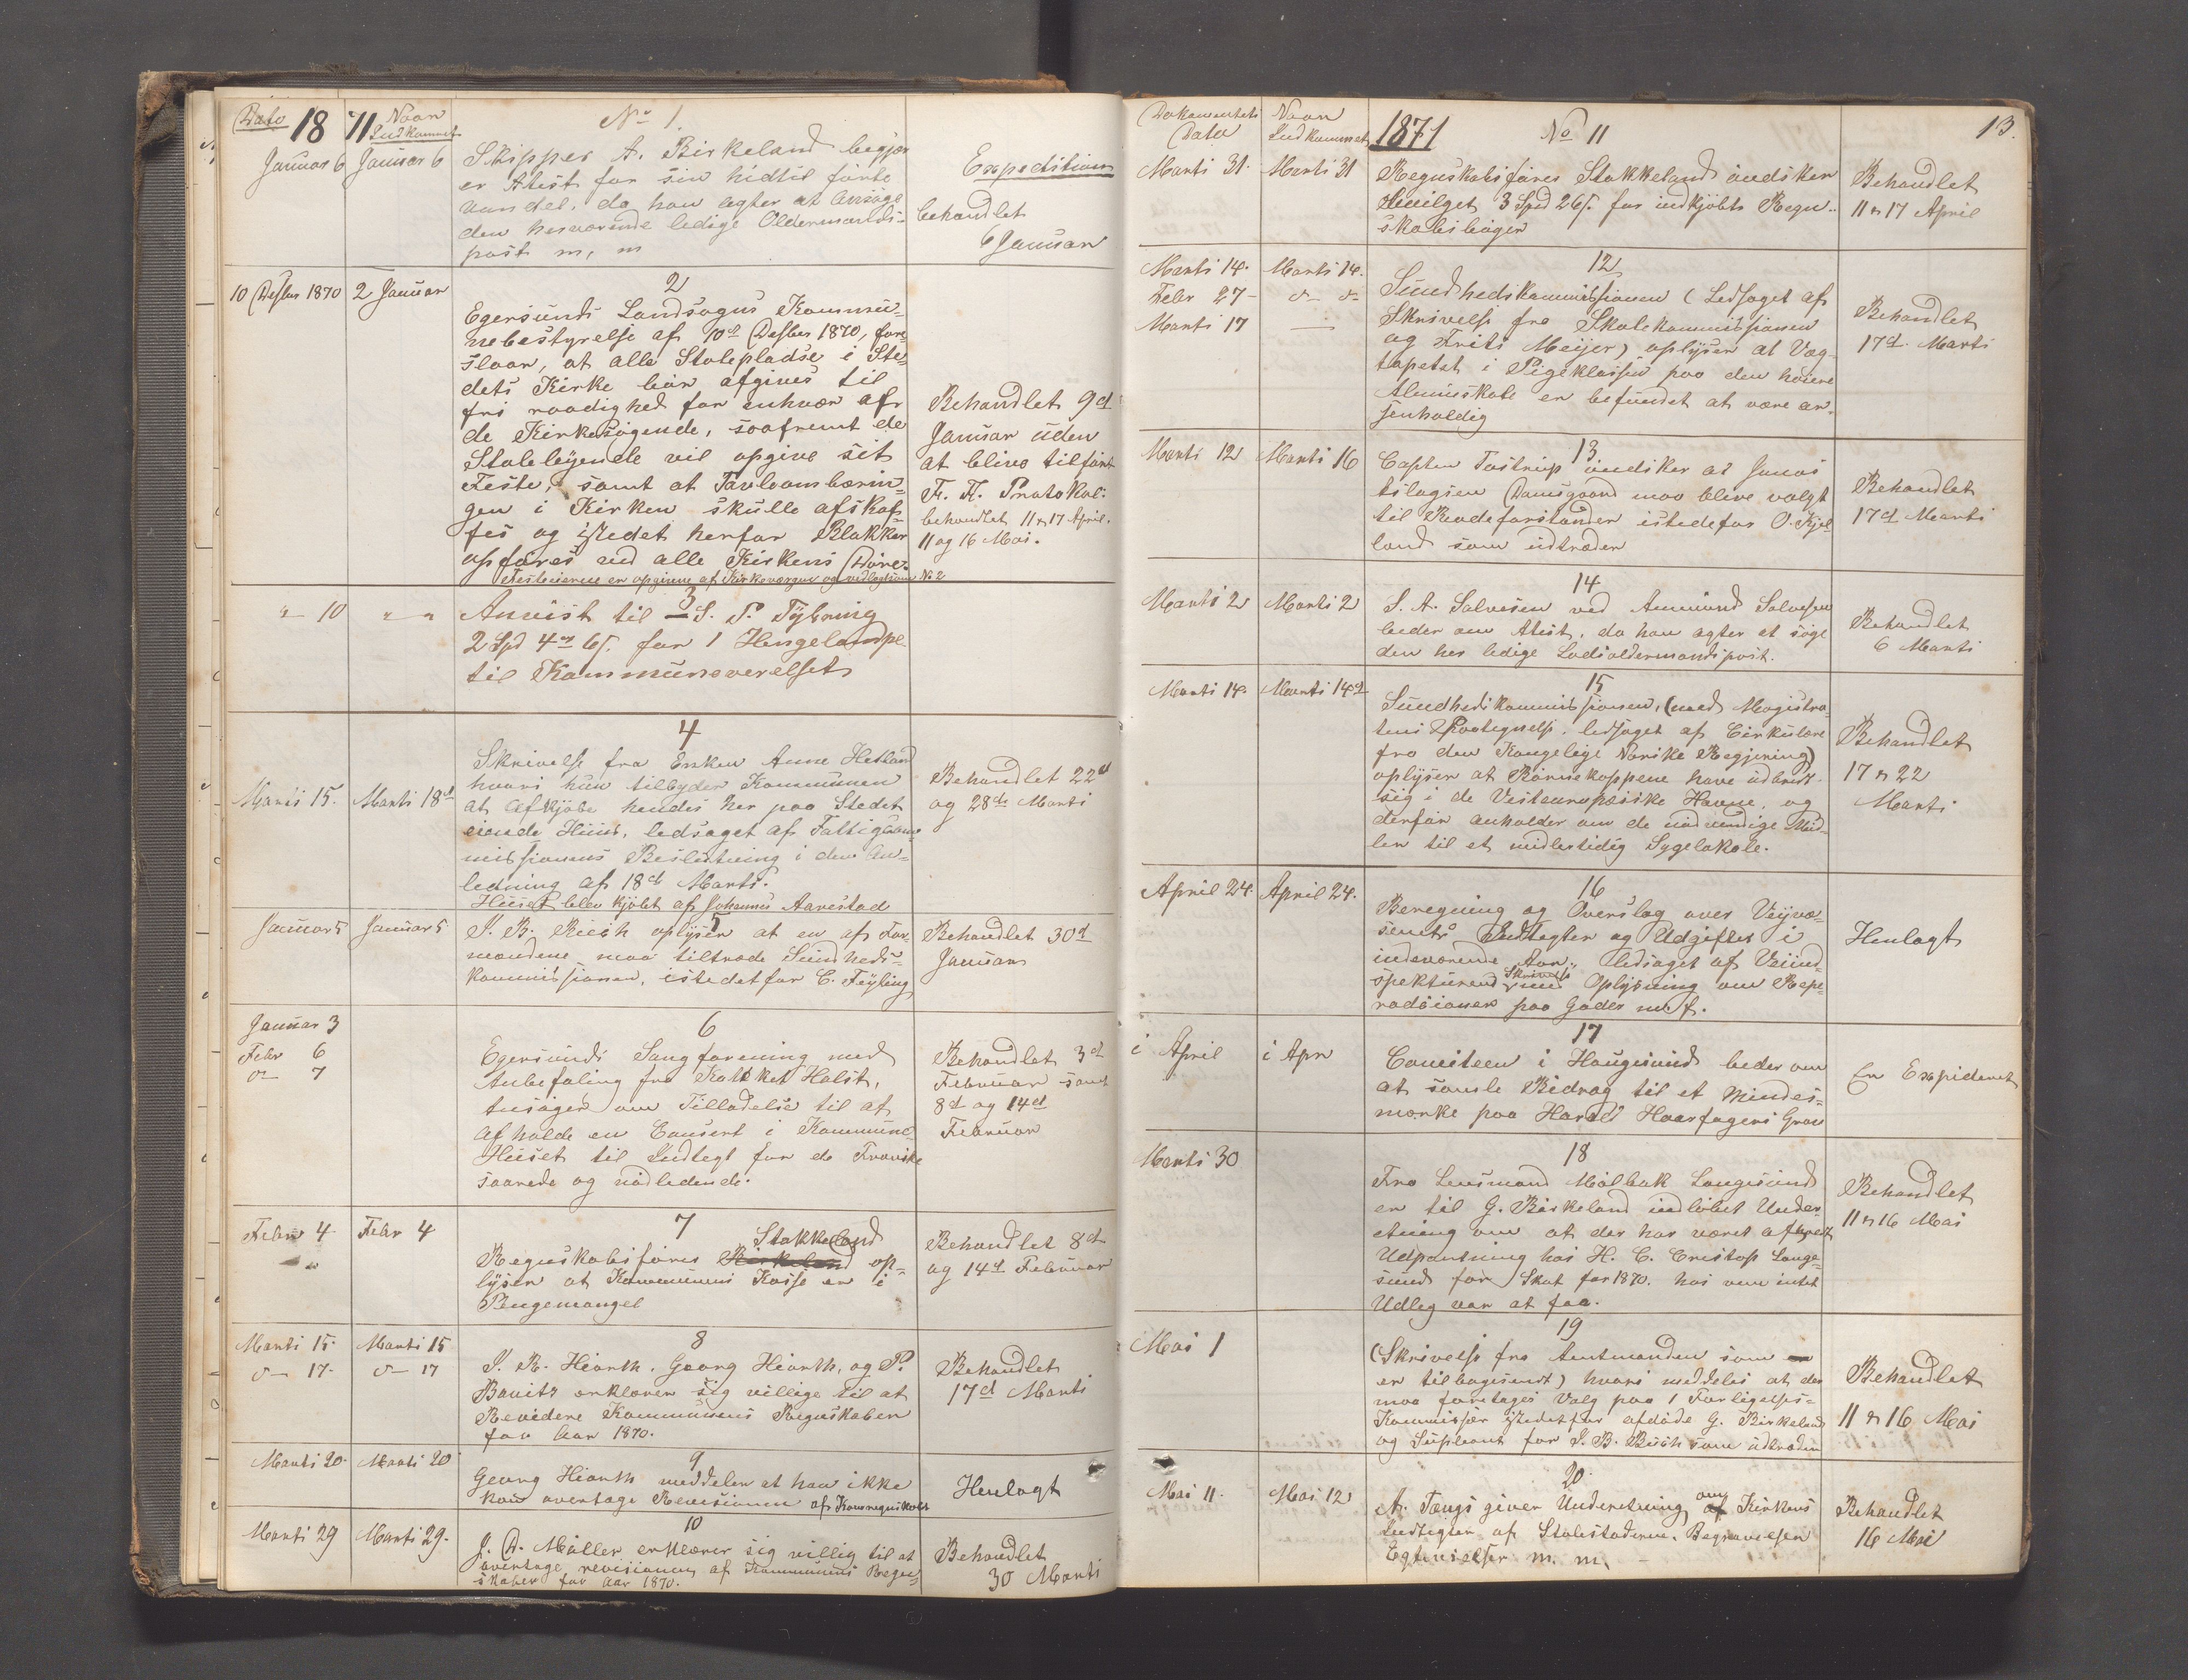 Dato 1871 Naar Indkommet No 1.
Januar 6 Januar 6 Skipper A. Birkeland begjær
er Atest for sin hidtil førte
vandel, da han agter at Ansøge
den herværende ledige Oldermands-
post m, m
Expedition
behandlet
6 Januar
10 Desber 1870 2 Januar
2
Egersunds Landsogns Kommu-
nebestyrelse af 10de Desber 1870, fore-
slaar, at alle Stolepladse i Ste-
dets Kirke bør afgives til
fri raadighed for enhver af
de Kirkesøgende, saafremt de
Stoleleyende vil opgive sit
Feste, samt at Tavleombærin-
gen i Kirken skulle afskaf-
fes og istedet herfor Blokker
opføres ved alle Kirkens Døre.
Festeeierne er opgivne af Kirkeværgen og vedlagt som No 2
Behandlet 9d
Januar uden
at blive tilført
F. F. Protokol:
behandlet 11 & 17 April.
11 og 16 Mai.
" 10 " "
3
Anvist til S. P. Tybring
2 Spd 4 6s. for 1 Hengelampe
til Kommuneverelset
4
Marti 15. Marti 18d
Skrivelse fra Enken Anne Hetland
hvori hun tilbyder Kommunen
at Afkjøbe hendes her paa Stedet
eiende Huus, ledsaget af Fattigkom-
missionens Beslutning i den An-
ledning af 18d Marts.
Huset blev kjøbt af Johannes Aarestad
Behandlet 22d
og 28de Marti
Januar 5 Januar 5
5
J. B. Puch oplyser at en af For-
mændene maa tiltræde Sundheds-
kommissionen, istedetfor C. Feyling
Behandlet 30d
Januar
Januar 3
Febr 6
d— 7
6
Egersunds Sangforening med
Anbefaling fra Holst,
Ansøger om Tilladelse til at
Afholde en Consert i Kommune-
Huset til Indtegt for de Franske
saarede og nødlidende.
Behandlet 3d
Februar samt
8d og 14d
Februar
Febru 4 Febr 4
7
Stokkeland
Regnskabsfører Birkeland op-
lyser at Kommunens Kasse er i
Pengemangel
Behandlet 8d
og 14d Februar
Marti 15. Marti 15
d— 17. d— 17
8
J. R. Hiorth, Georg Hiorth, og P.
Bauitz erklærer sig villige til at
Revidere Kommunens Regnskaber
for Aar 1870.
Behandlet
17d Marti
Marti 20. Marti 20
9
Georg Hiorth meddeler at han ikke
kan overtage Revisionen af Komregnskabt
Henlagt
Marti 29 Marti 29.
10
J. D. Møller erklærer sig villig til at
overtage revisionen af Kommunens Regn-
skaber for Aar 1870.
Behandlet
30 Marti
Dokumentets Dato Naar Indkommet 1871 No 11 13.
Marti 31. Marti 31
Regnskabsfører Stokkeland øndsker
bevilget 3 Spd 26s. for indkjøbte Regn-
skabsbøger
Behandlet
11 & 17 April
Marti 14. Marti 14.
Febr 27— d— d—
Marti 17 —
12
Sundhedskommissionen (Ledsaget af
Skrivelse fra Skolekommissionen
og Frits Meijer) oplyser at Væg-
tapetet i Pigeklassen paa den høiere
Almuskole er befundet at være ar-
senholdig
Behandlet
17d. Marti
Marti 12 Marti 16
13
Capten Tostrup øndsker at Jonas
tslagsen Damsgaard maa blive valgt
til Rodeforstander istedefor O. Kjel
land som udtræder
Behandlet
17d Marti
Marti 2 Marti 2
14
S. A. Salvesen ved Ammund Salvesen
beder om Atest, da han agter at søge
den her ledige Lodsoldermandspost.
Behandlet
6 Marti
Marti 14. Marti 14d
15
Sundhedskommissionen, (med Magistra-
tens Paategnelse, ledsaget af Cirkulære
fra den Kongelige Norske Regjering)
oplyser at Børnekoppene have udbredt
sig i de Vesteuropæiske Havne, og
derfor anholder om de nødvendige Mid-
ler til et midlertidig Sygelokale.
Behandlet
17 & 22
Marti
April 24. April 24.
16
Beregning og Overslag over Veivæ-
senets Indtegter og Udgifter i
indeværende Aar, ledsaget af Veiind-
spekturens Skrivelse med Oplysning om Repe-
rasioner paa Gader m. f.
Henlagt
i April i Apr
17
Comiteen i Haugesund beder om
at samle Bidrag til et Mindes-
mærke paa Harald Haarfagers Grav
Er Expideret
Marti 30
18
Fra Lensmand Mølbak Langesund
er til G. Birkeland indløbet Under-
etning om at der har været afhprest
Udpantning hos H. C. Cristop Lange-
sund for Skat for 1870. hos vem intet
Udlæg var at faa.
Behandlet
11 & 16 Mai
Mai 1
19
(Skrivelse fra Amtmanden som
er tilbagesendt) hvori meddeles at der
maa foretages Valg paa 1 Forligelses-
Kommissær istedetfor afdøde G. Birkeland
og Supleant for J. B. Puch som udtræder
Behandlet
11 & 16 Mai
Mai 11. Mai 12
20
A. Tængs giver Underetning om Kirkens
Indtegter af Stolestaderne, Begravelser
Egtevielser m. m.
Behandlet
16 Mai